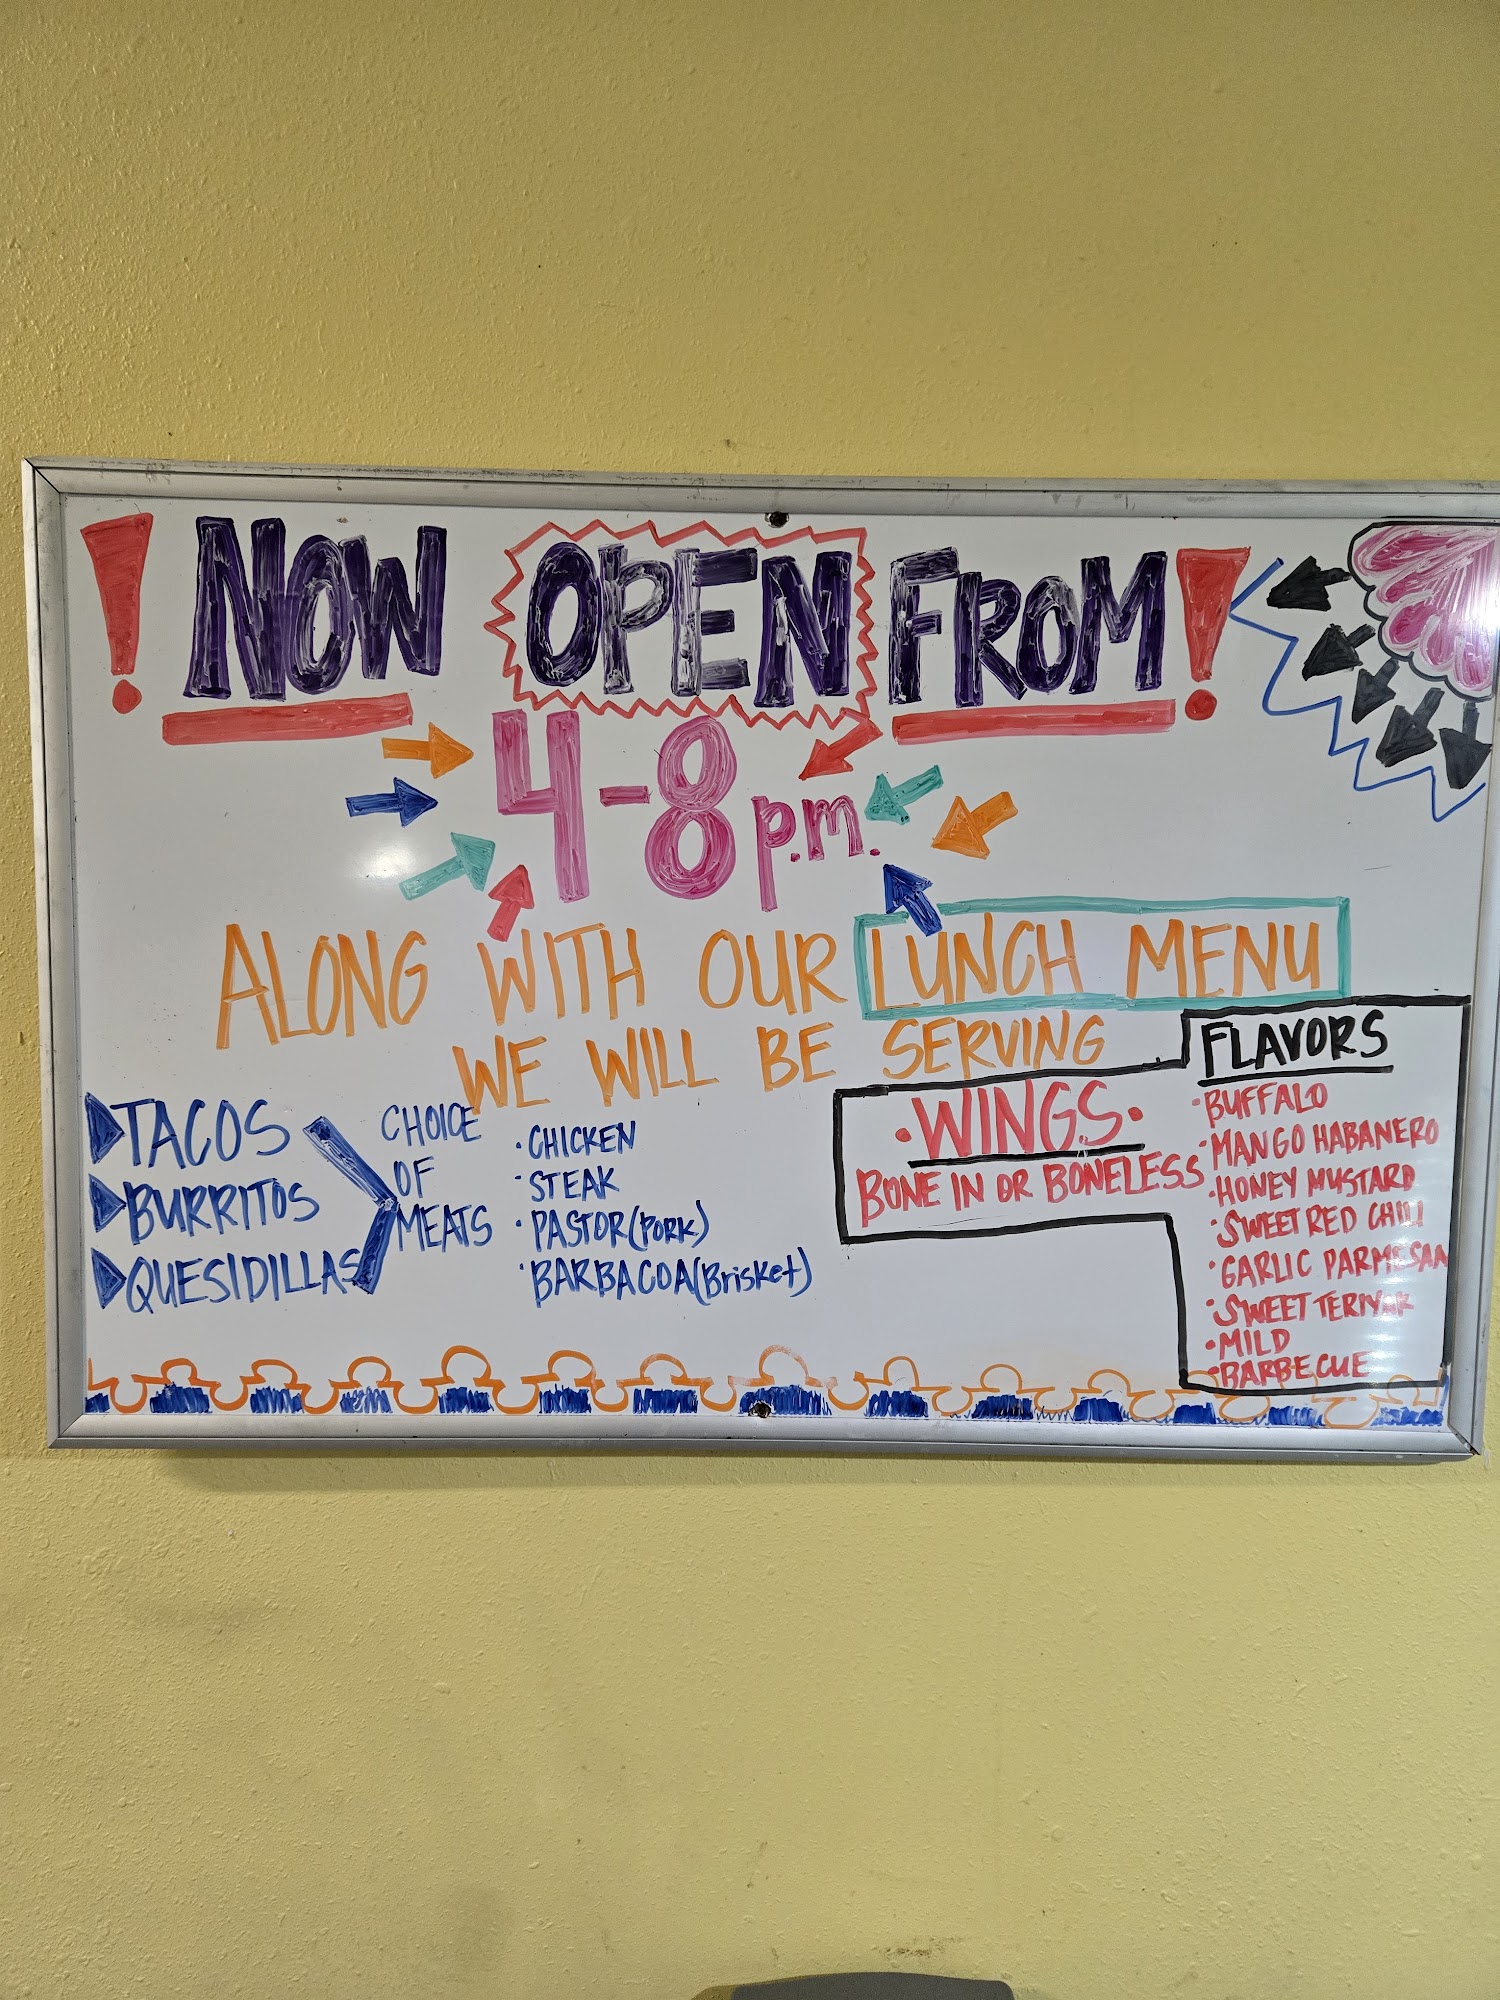 ! NOW OPEN FROM !
4-8 p.m.
ALONG WITH OUR LUNCH MENU
WE WILL BE SERVING
TACOS
BURRITOS
QUESIDILLAS
CHOICE
OF
MEATS
· CHICKEN
· STEAK
· PASTOR (PORK)
· BARBACOA (Brisket)
· WINGS ·
BONE IN OR BONELESS
FLAVORS
· BUFFALO
· MANGO HABANERO
· HONEY MUSTARD
· SWEET RED CHILI
· GARLIC PARMESAN
· SWEET TERIYAKI
· MILD
· BARBECUE